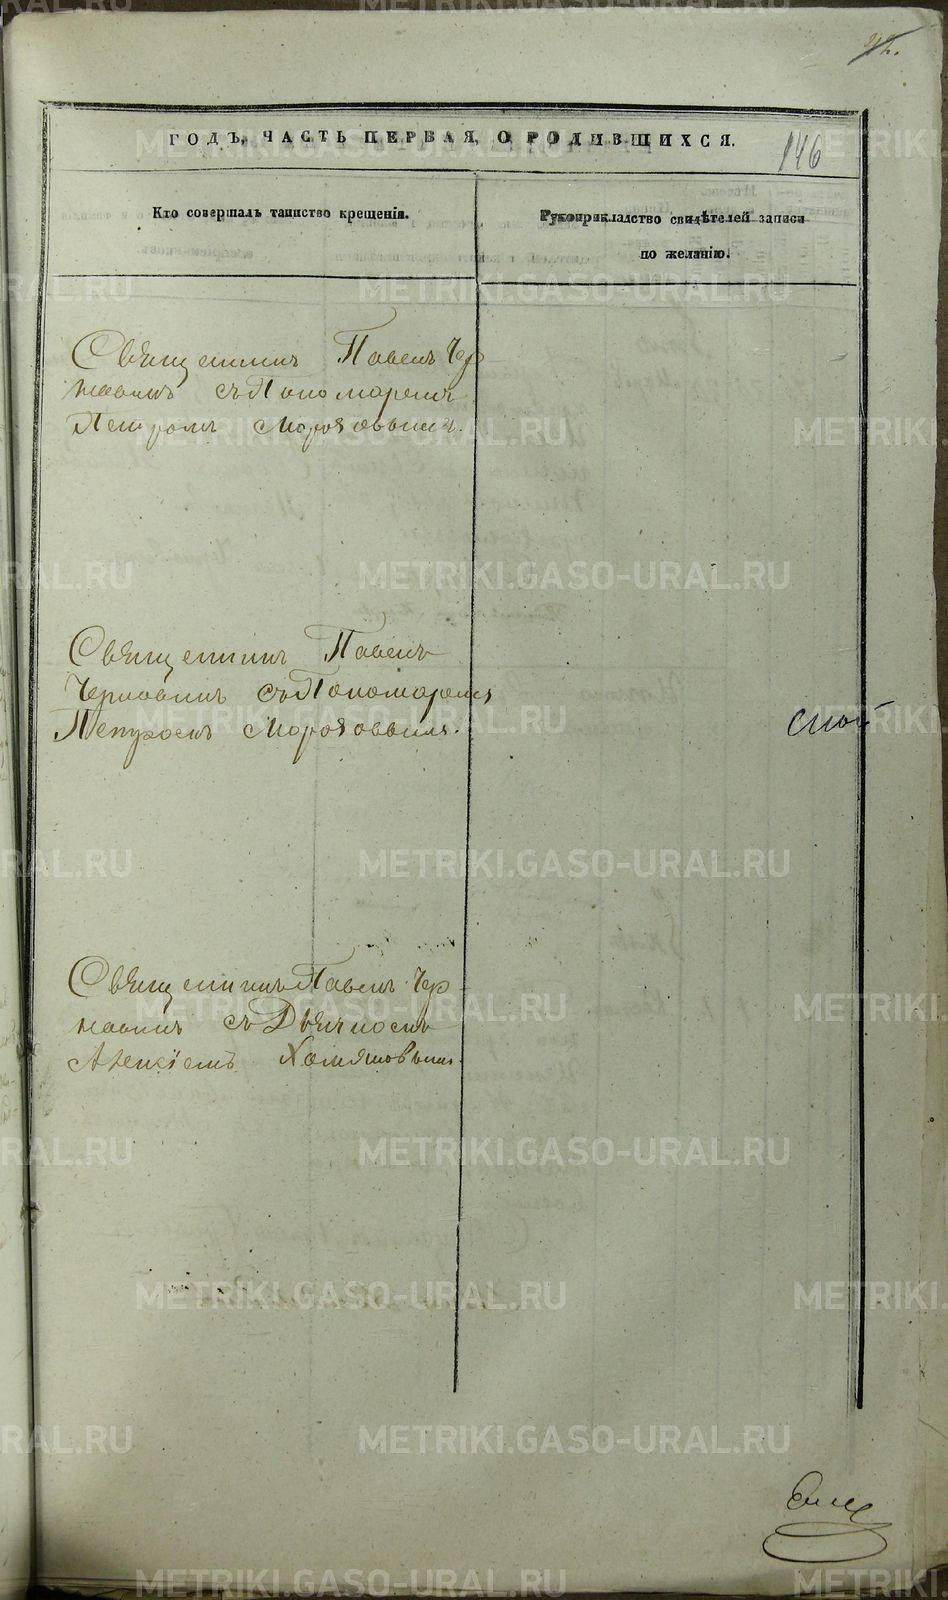 146
ГОДЪ, ЧАСТЬ ПЕРВАЯ, О РОДИВШИХСЯ.
Кто совершалъ таинство крещенія.
Рукоприкладство свидѣтелей записи
по желанію.
Священникъ Павелъ Чер
навинъ съ Пономаремъ
Петромъ Морозовымъ.
Священникъ Павелъ
Чернавинъ съ Пономаремъ
Петромъ Морозовымъ.
Священникъ Павелъ Чер
навинъ съ Дьячкомъ
Алексіемъ Хомяковымъ.
METRIKI.GASO-URAL.RU